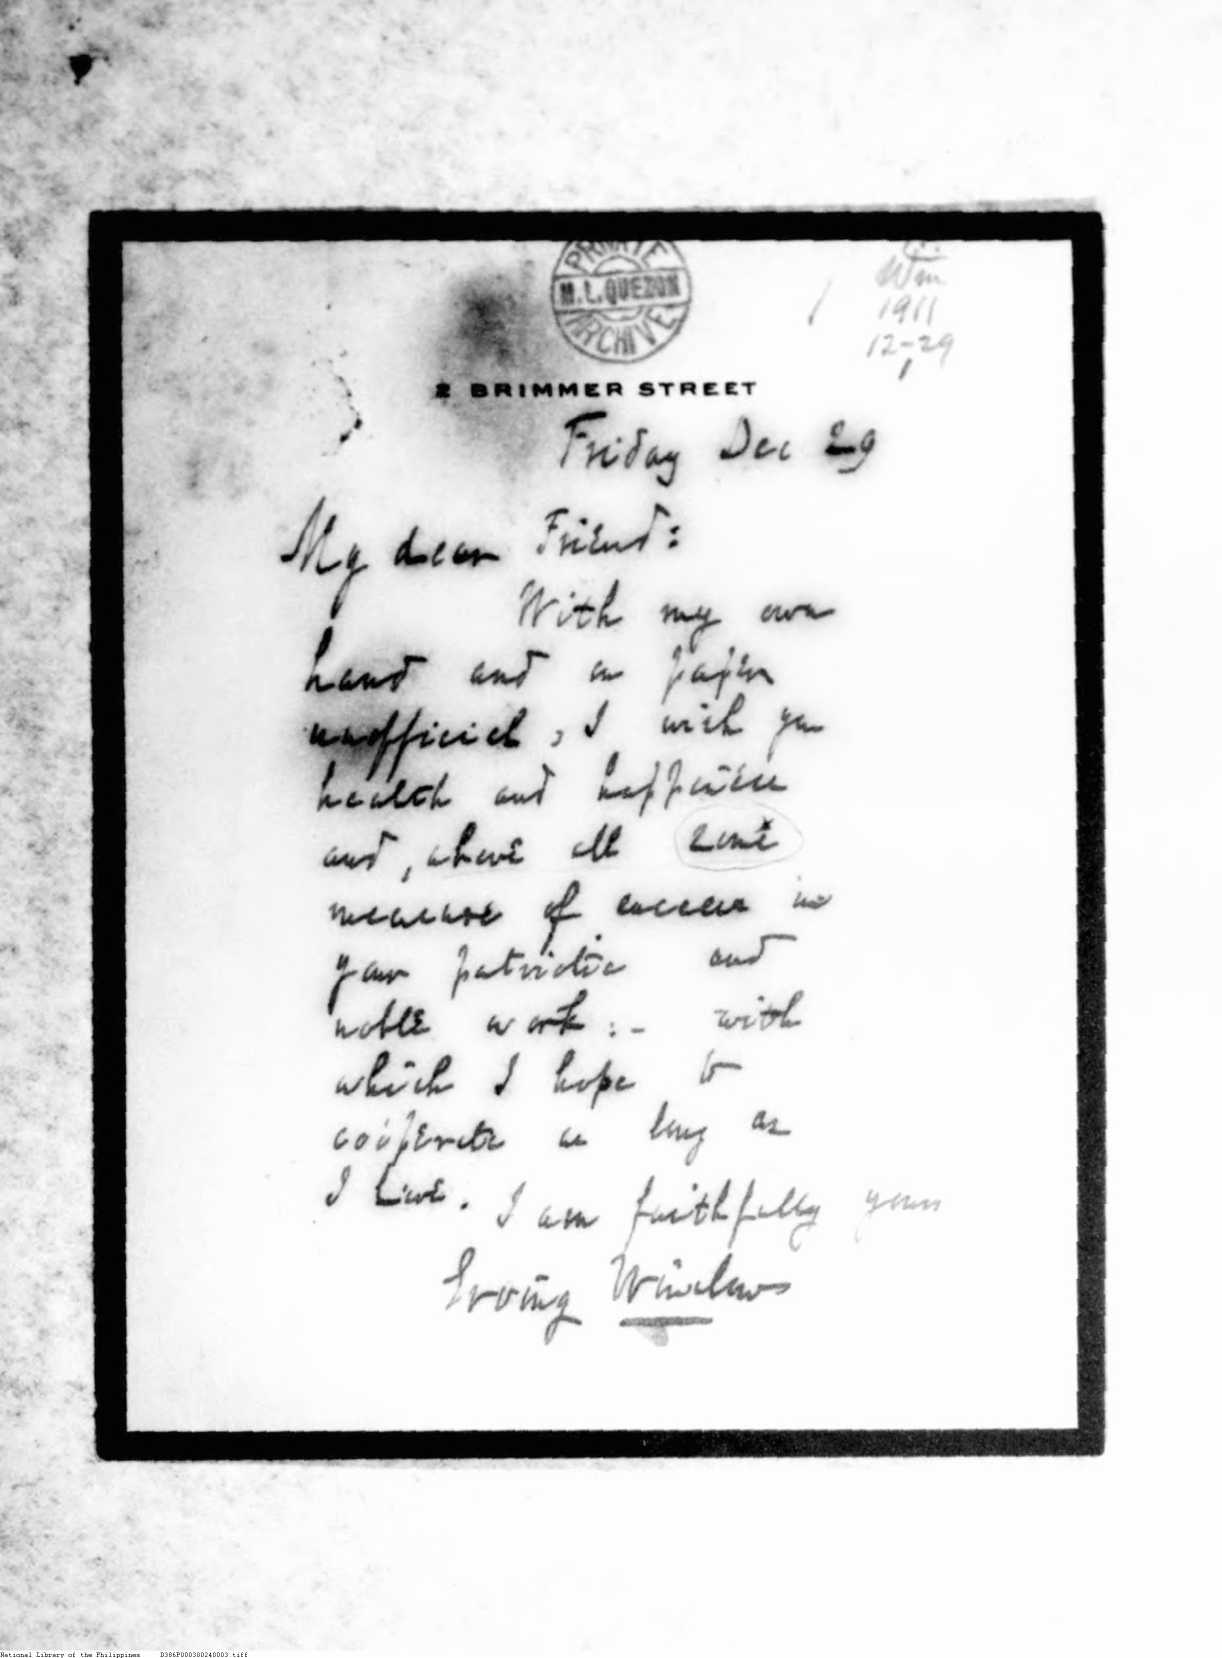 PRIVATE
M. L. QUEZON
ARCHIVE
Wm
1911
12-29
2 BRIMMER STREET
Friday Dec 29
My dear Friend:
With my own
hand and on paper
unofficial, I wish you
health and happiness
and, above all some
measure of success in
your patriotic and
noble work:- with
which I hope to
coöperate as long as
I live. I am faithfully yours
Erving Winslow
National Library of the Philippines D386P000300240003.tiff